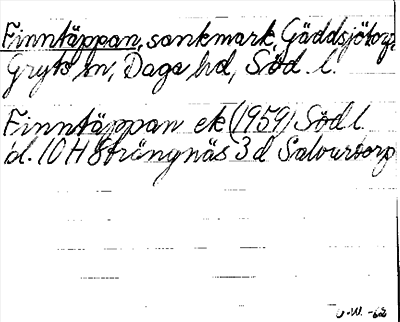 Finntäppan, sankmark, Gäddsjötorp,
Gryts sn, Daga hd, Söd. l.
Finntäppan ek (1959) Söd l
bl. 10 H Strängnäs 3 d Salvurtorp
J.W. -62